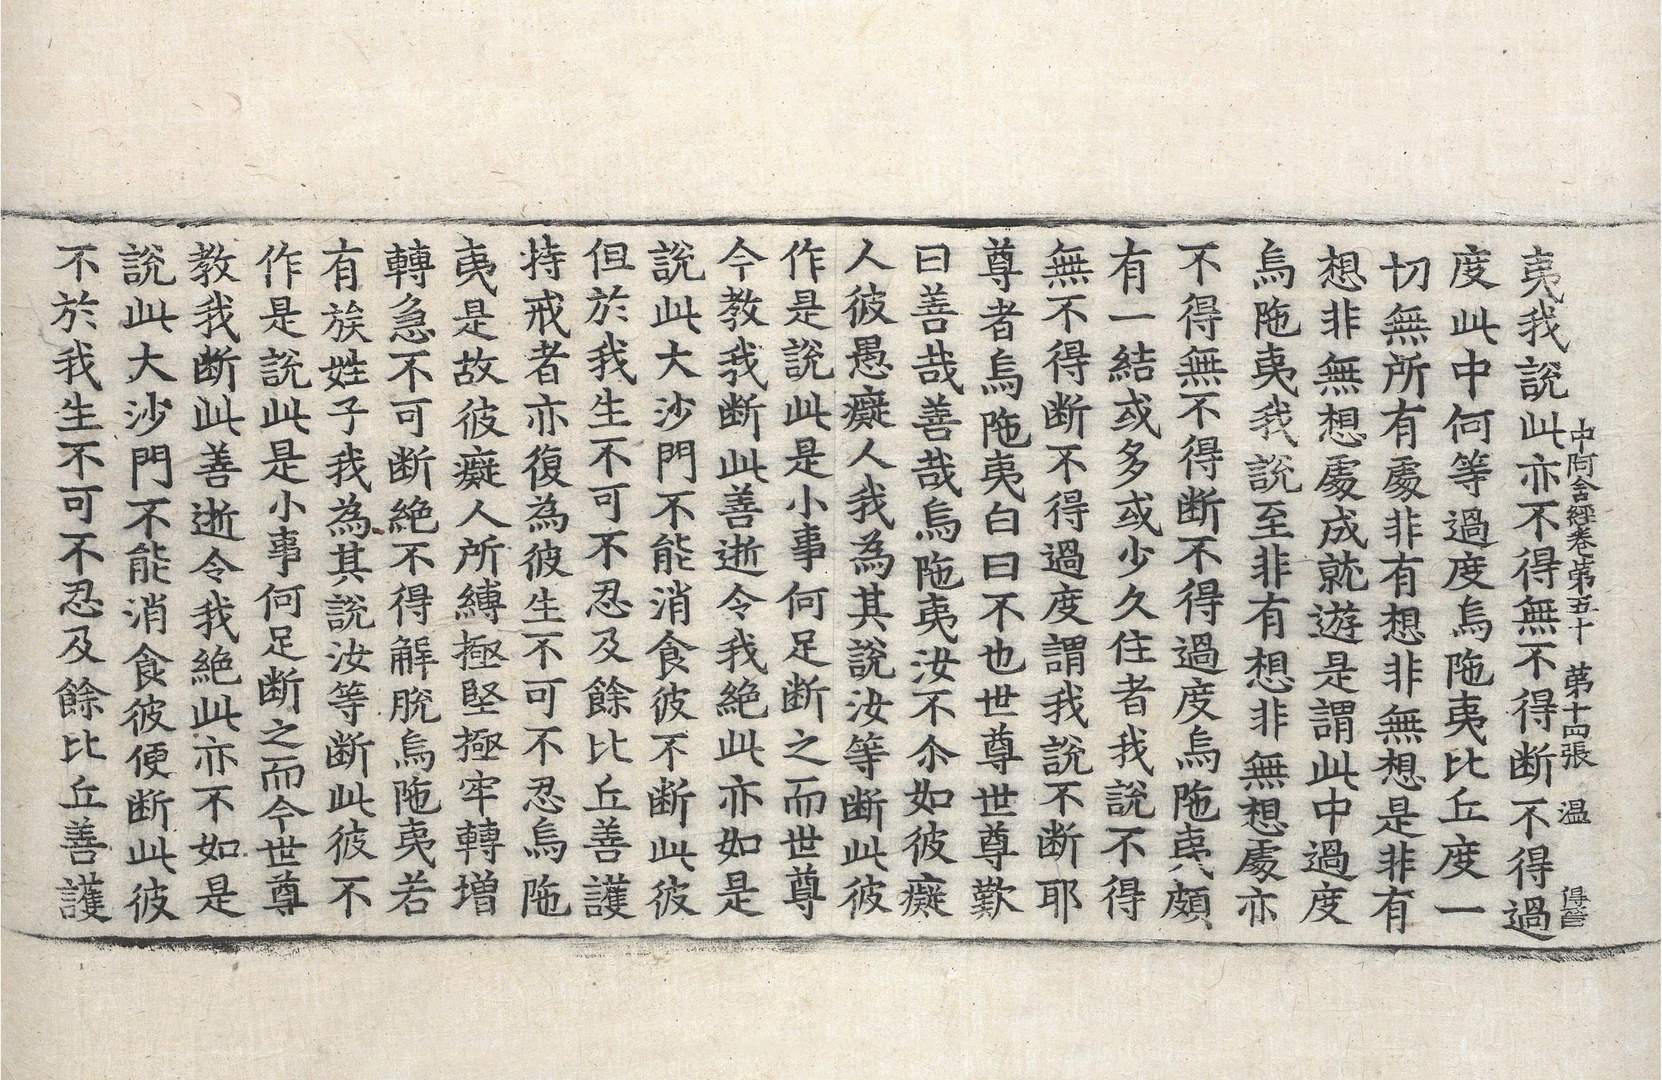 中阿含經卷第五十 第十四張 温 得管
夷我說此亦不得無不得断不得過
度此中何等過度烏陁夷比丘度一
切無所有處非有想非無想是非有
想非無想處成就遊是謂此中過度
烏陁夷我說至非有想非無想處亦
不得無不得断不得過度烏陁夷頗
有一結或多或少久住者我說不得
無不得断不得過度謂我說不断耶
尊者烏陁夷白曰不也世尊世尊歎
曰善哉善哉烏陁夷汝不尒如彼癡
人彼愚癡人我為其說汝等断此彼
作是說此是小事何足断之而世尊
今教我断此善逝令我絕此亦如是
說此大沙門不能消食彼不断此彼
但於我生不可不忍及餘比丘善護
持戒者亦復為彼生不可不忍烏陁
夷是故彼癡人所縛極堅極牢轉增
轉急不可断絕不得解脫烏陁夷若
有族姓子我為其說汝等断此彼不
作是說此是小事何足断之而今世尊
教我断此善逝令我絕此亦不如是
說此大沙門不能消食彼便断此彼
不於我生不可不忍及餘比丘善護